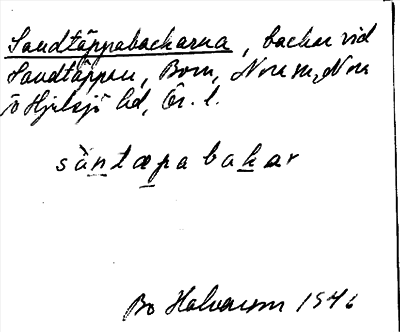 Sandtäppabackarna, backar vid
Sandtäppan, Born, Nora sn, Nora
o Hjulsjö hd, Ör. l.
sàntæpabakar
Bo Halvarson 1946